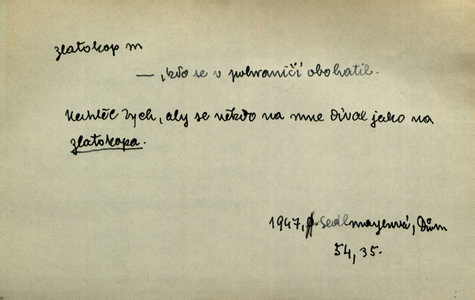 zlatokop m
— ‚kdo se v pohraničí obohatil.
Nechtěl bych, aby se někdo na mne díval jako na
zlatokopa.
1947, Sedlmayerová, Dům
54, 35.